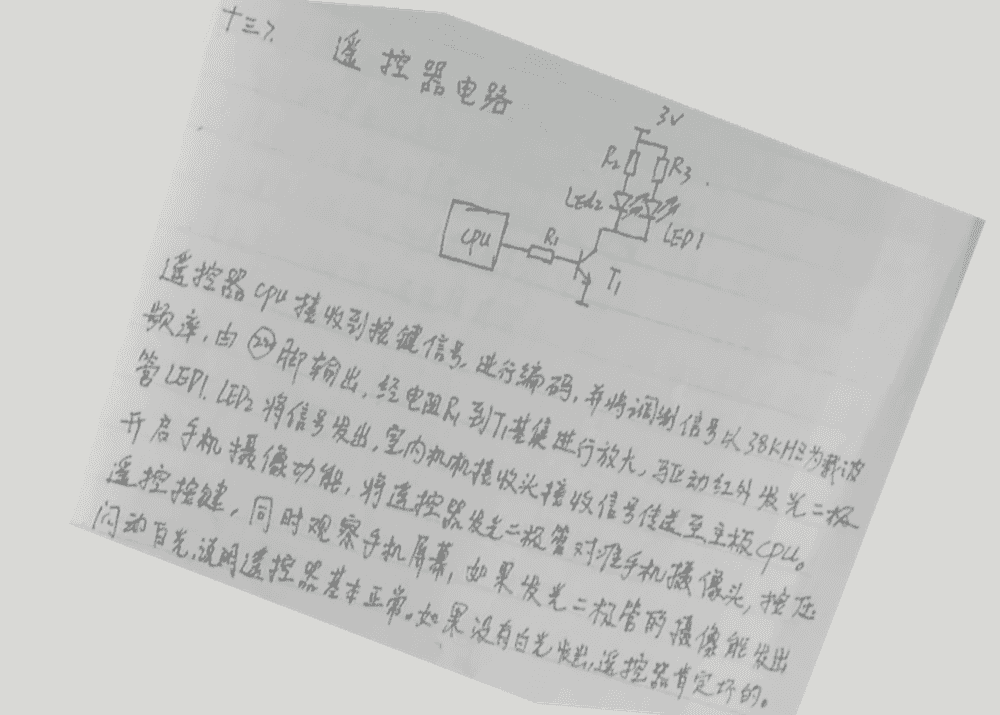 十三、 遥控器电路
3V
R2 R3
LED2 LED1
CPU R1 T1
遥控器CPU接收到按键信号,进行编码,并将调制信号以38KHz为载波
频率,由㉔脚输出,经电阻R1到T1基集进行放大,驱动红外发光二极
管LED1.LED2将信号发出,室内机机接收头接收信号传送至主板CPU。
开启手机摄像功能,将遥控器发光二极管对准手机摄像头,按压
遥控按键,同时观察手机屏幕,如果发光二极管的摄像能发出
闪动白光,说明遥控器基本正常。如果没有白光发出,遥控器肯定坏的。